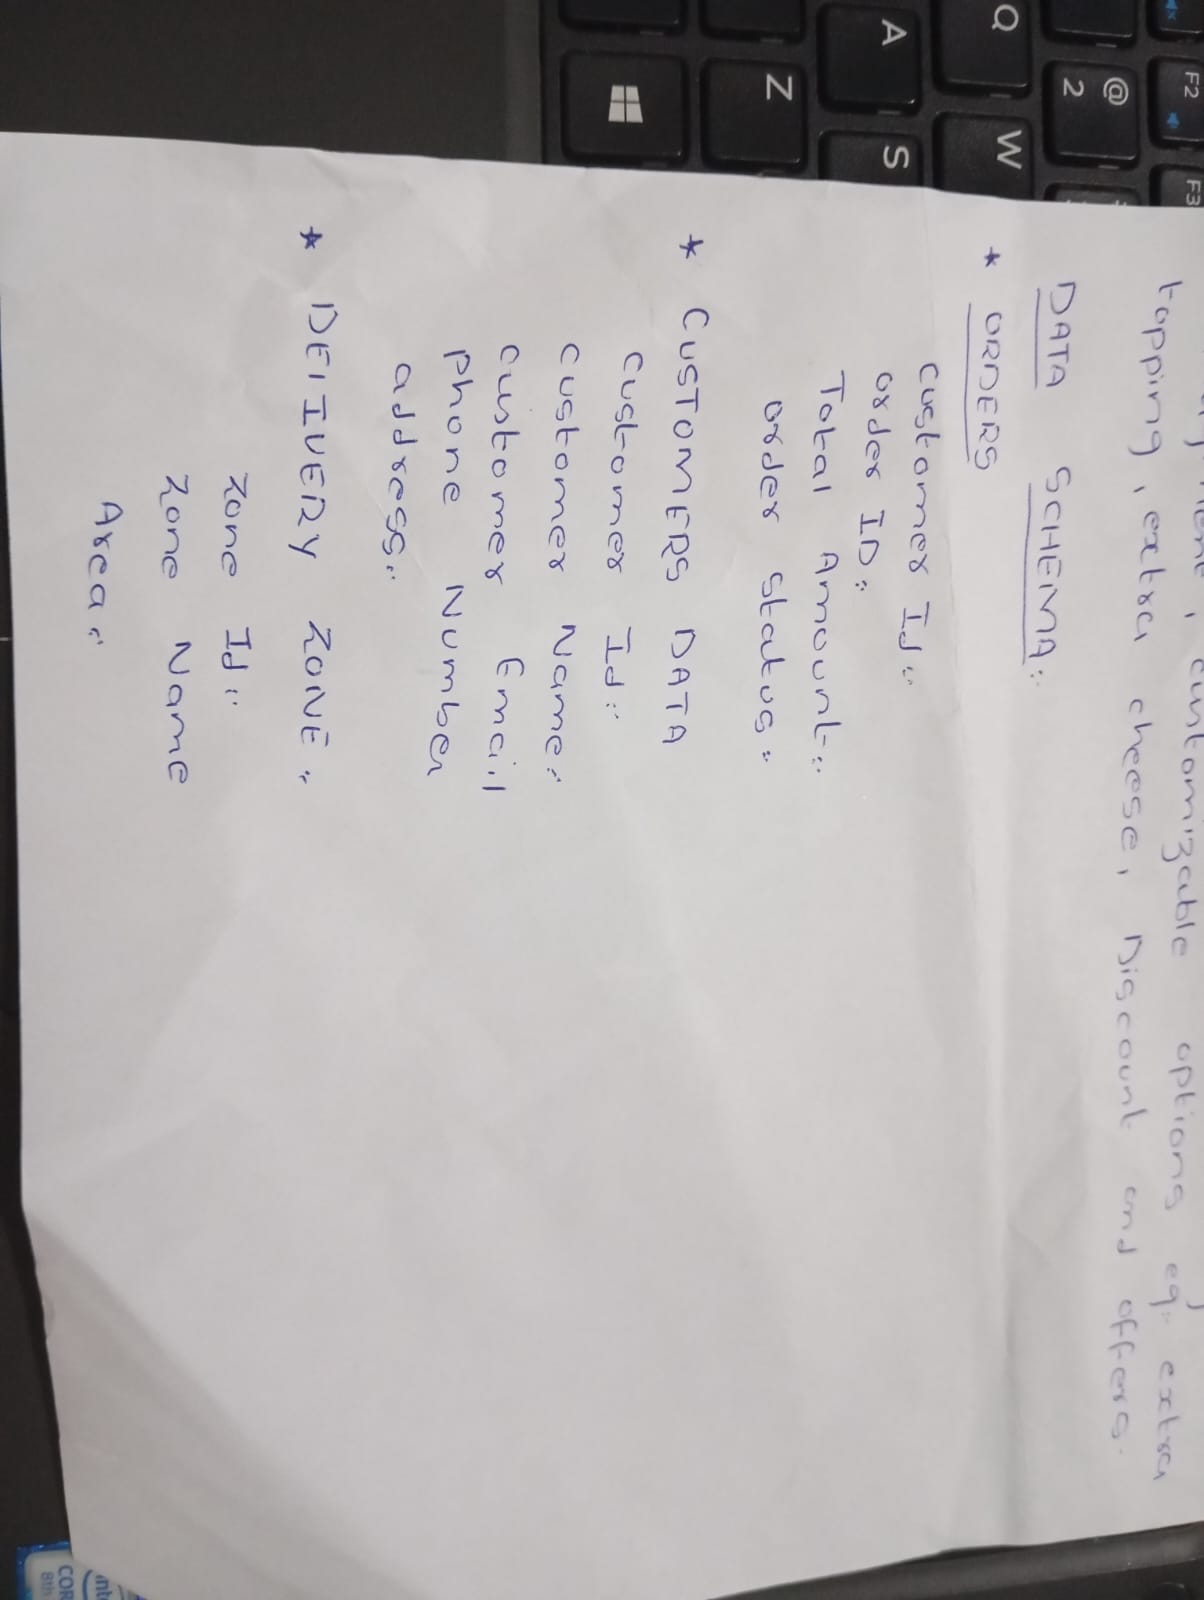 customizable options eg:- extra
topping, extra cheese, Discount and offers.
DATA SCHEMA:-
* ORDERS
Customer Id:-
order ID:-
Total Amount:-
order status:-
* CUSTOMERS DATA
Customer Id:-
Customer Name:-
Customer Email
Phone Number
address:-
* DELIVERY ZONE:-
Zone Id:-
Zone Name
Area:-
F2
F3
@
2
Q
W
A
S
Z
COR
8th